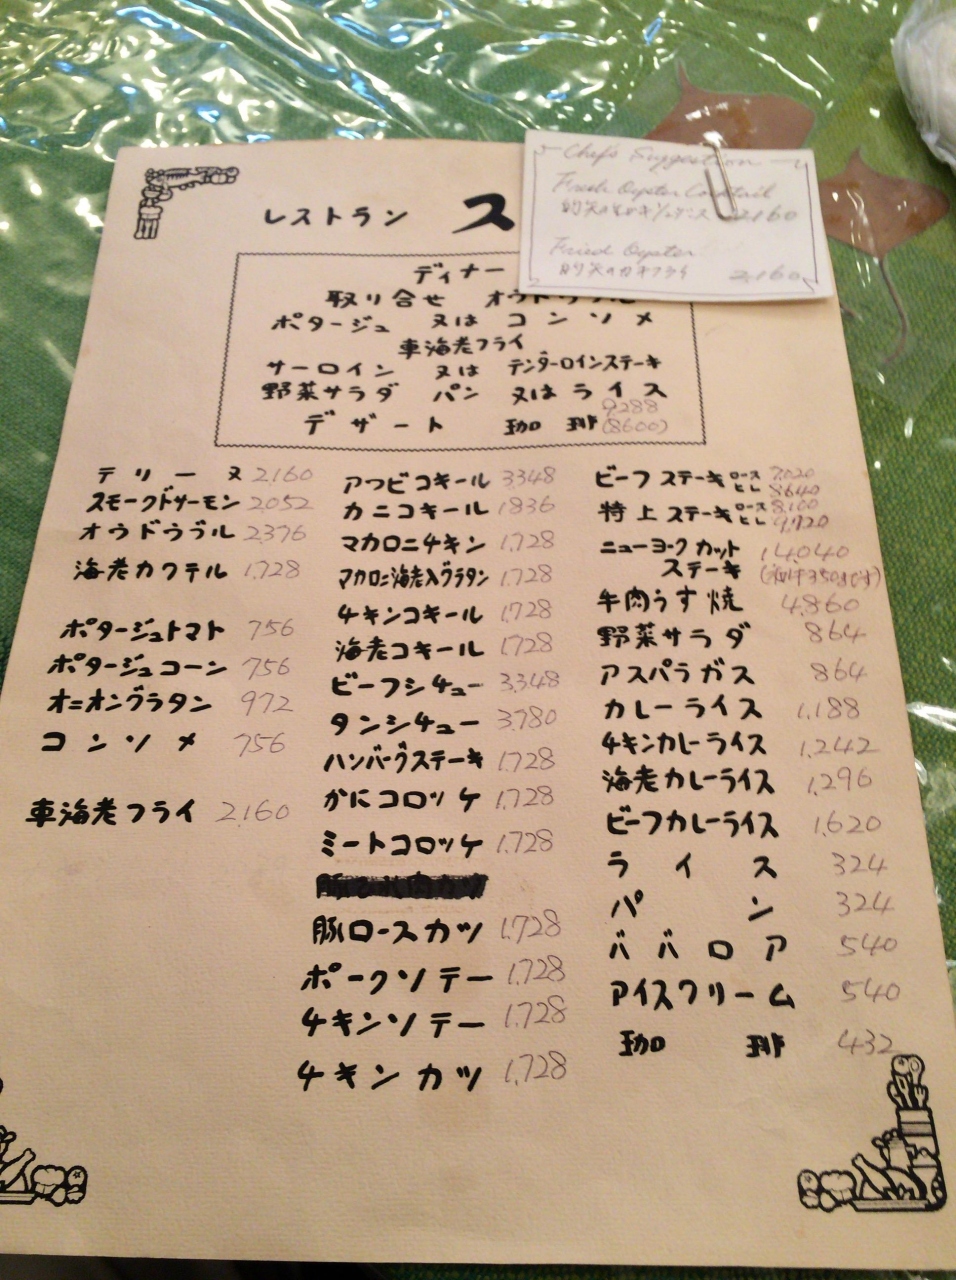 Chef's Suggestion
Fresh Oyster Cocktail
2160
Fried Oyster
的矢のカキフライ 2,160
レストラン ス
ディナー
取り合せ オウドウブル
ポタージュ 又は コンソメ
車海老フライ
サーロイン 又は テンダーロインステーキ
野菜サラダ パン 又は ライス
9288
デザート 珈琲 (8600)
テリーヌ 2160
スモークドサーモン 2052
オウドウブル 2376
海老カクテル 1,728
ポタージュトマト 756
ポタージュコーン 756
オニオングラタン 972
コンソメ 756
車海老フライ 2,160
アワビコキール 3,348
カニコキール 1836
マカロニチキン 1,728
マカロニ海老入グラタン 1,728
チキンコキール 1,728
海老コキール 1,728
ビーフシチュー 3,348
タンシチュー 3,780
ハンバーグステーキ 1,728
かにコロッケ 1,728
ミートコロッケ 1,728
豚ロースカツ 1,728
ポークソテー 1,728
チキンソテー 1,728
チキンカツ 1,728
ビーフステーキ ロース 7,020
ヒレ 8,640
特上ステーキ ロース 8,100
ヒレ 9,720
ニューヨークカット 14,040
ステーキ
牛肉うす焼 4,860
野菜サラダ 864
アスパラガス 864
カレーライス 1,188
チキンカレーライス 1,242
海老カレーライス 1,296
ビーフカレーライス 1,620
ライス 324
パン 324
ババロア 540
アイスクリーム 540
珈琲 432